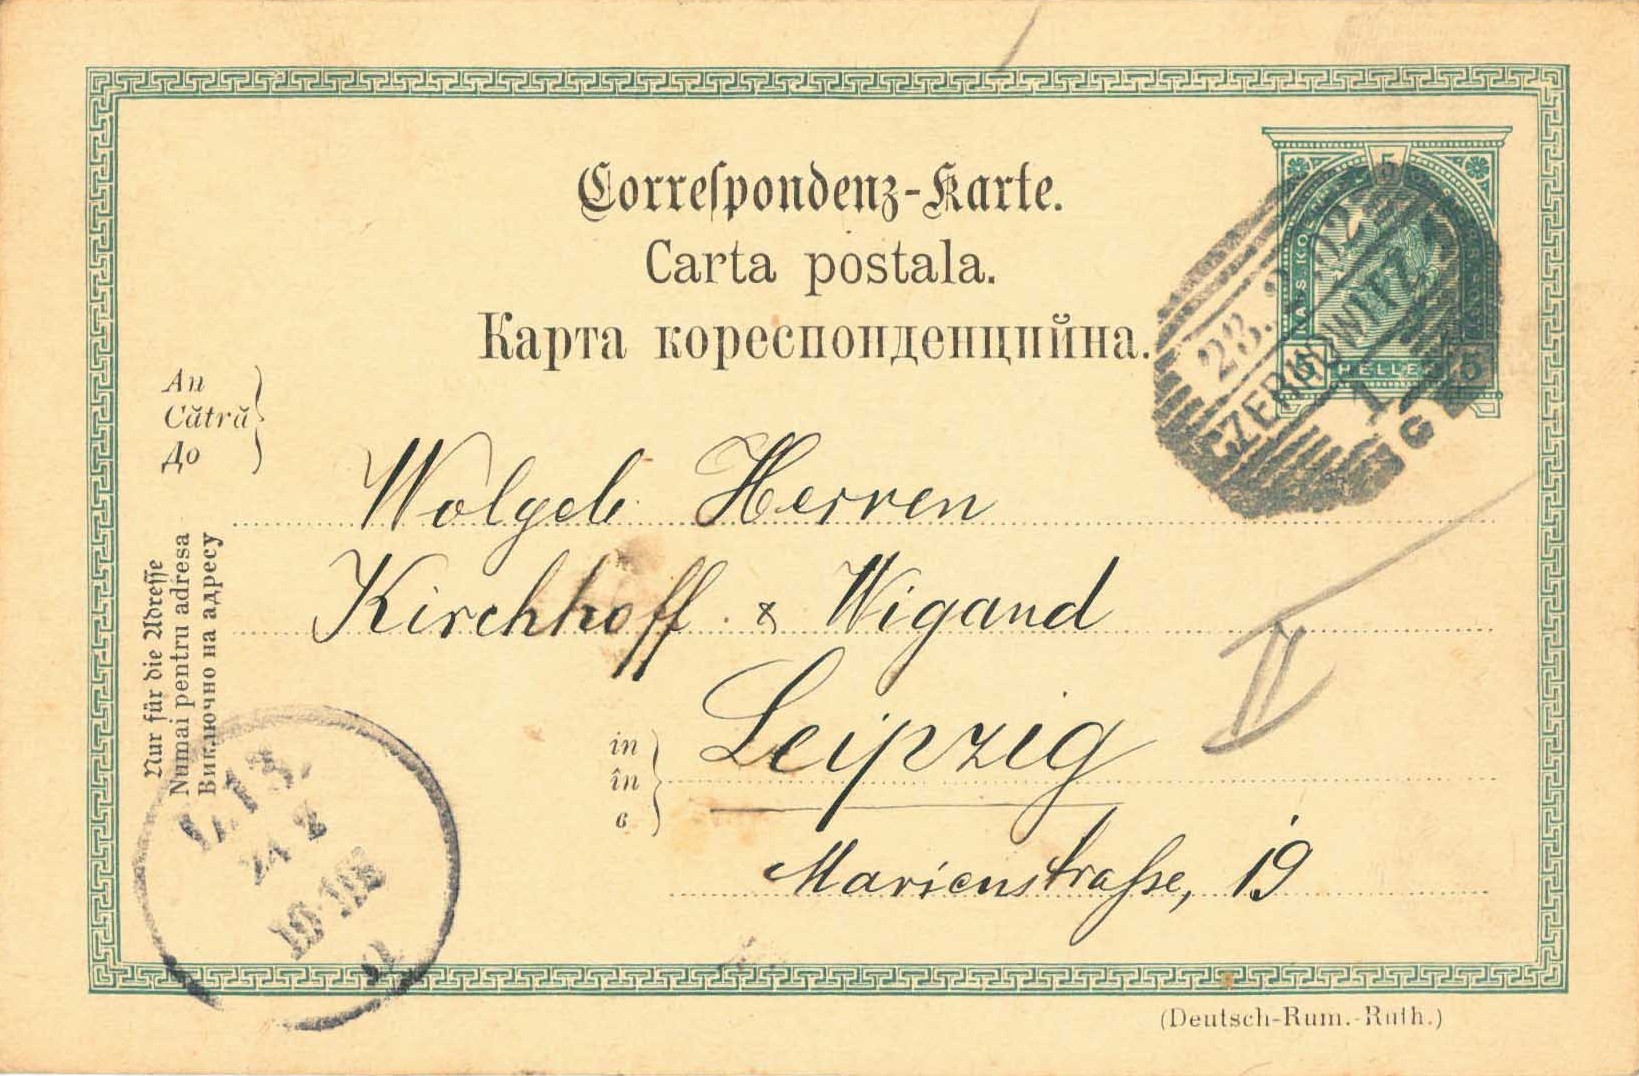 Correſpondenz-Karte.
Carta postala.
Карта кореспонденцийна.
5
5 HELLER 5
23. 2 02
CZERNOWITZ 1
G
An
Cătră
До
Wolgeb Herren
Kirchhoff & Wigand
in
în
в
Leipzig
Marienstraße, 19
Nur für die Adreſſe
Numai pentru adresa
Виключно на адресу
II
LPZ.
24 2
(Deutsch-Rum.-Ruth.)